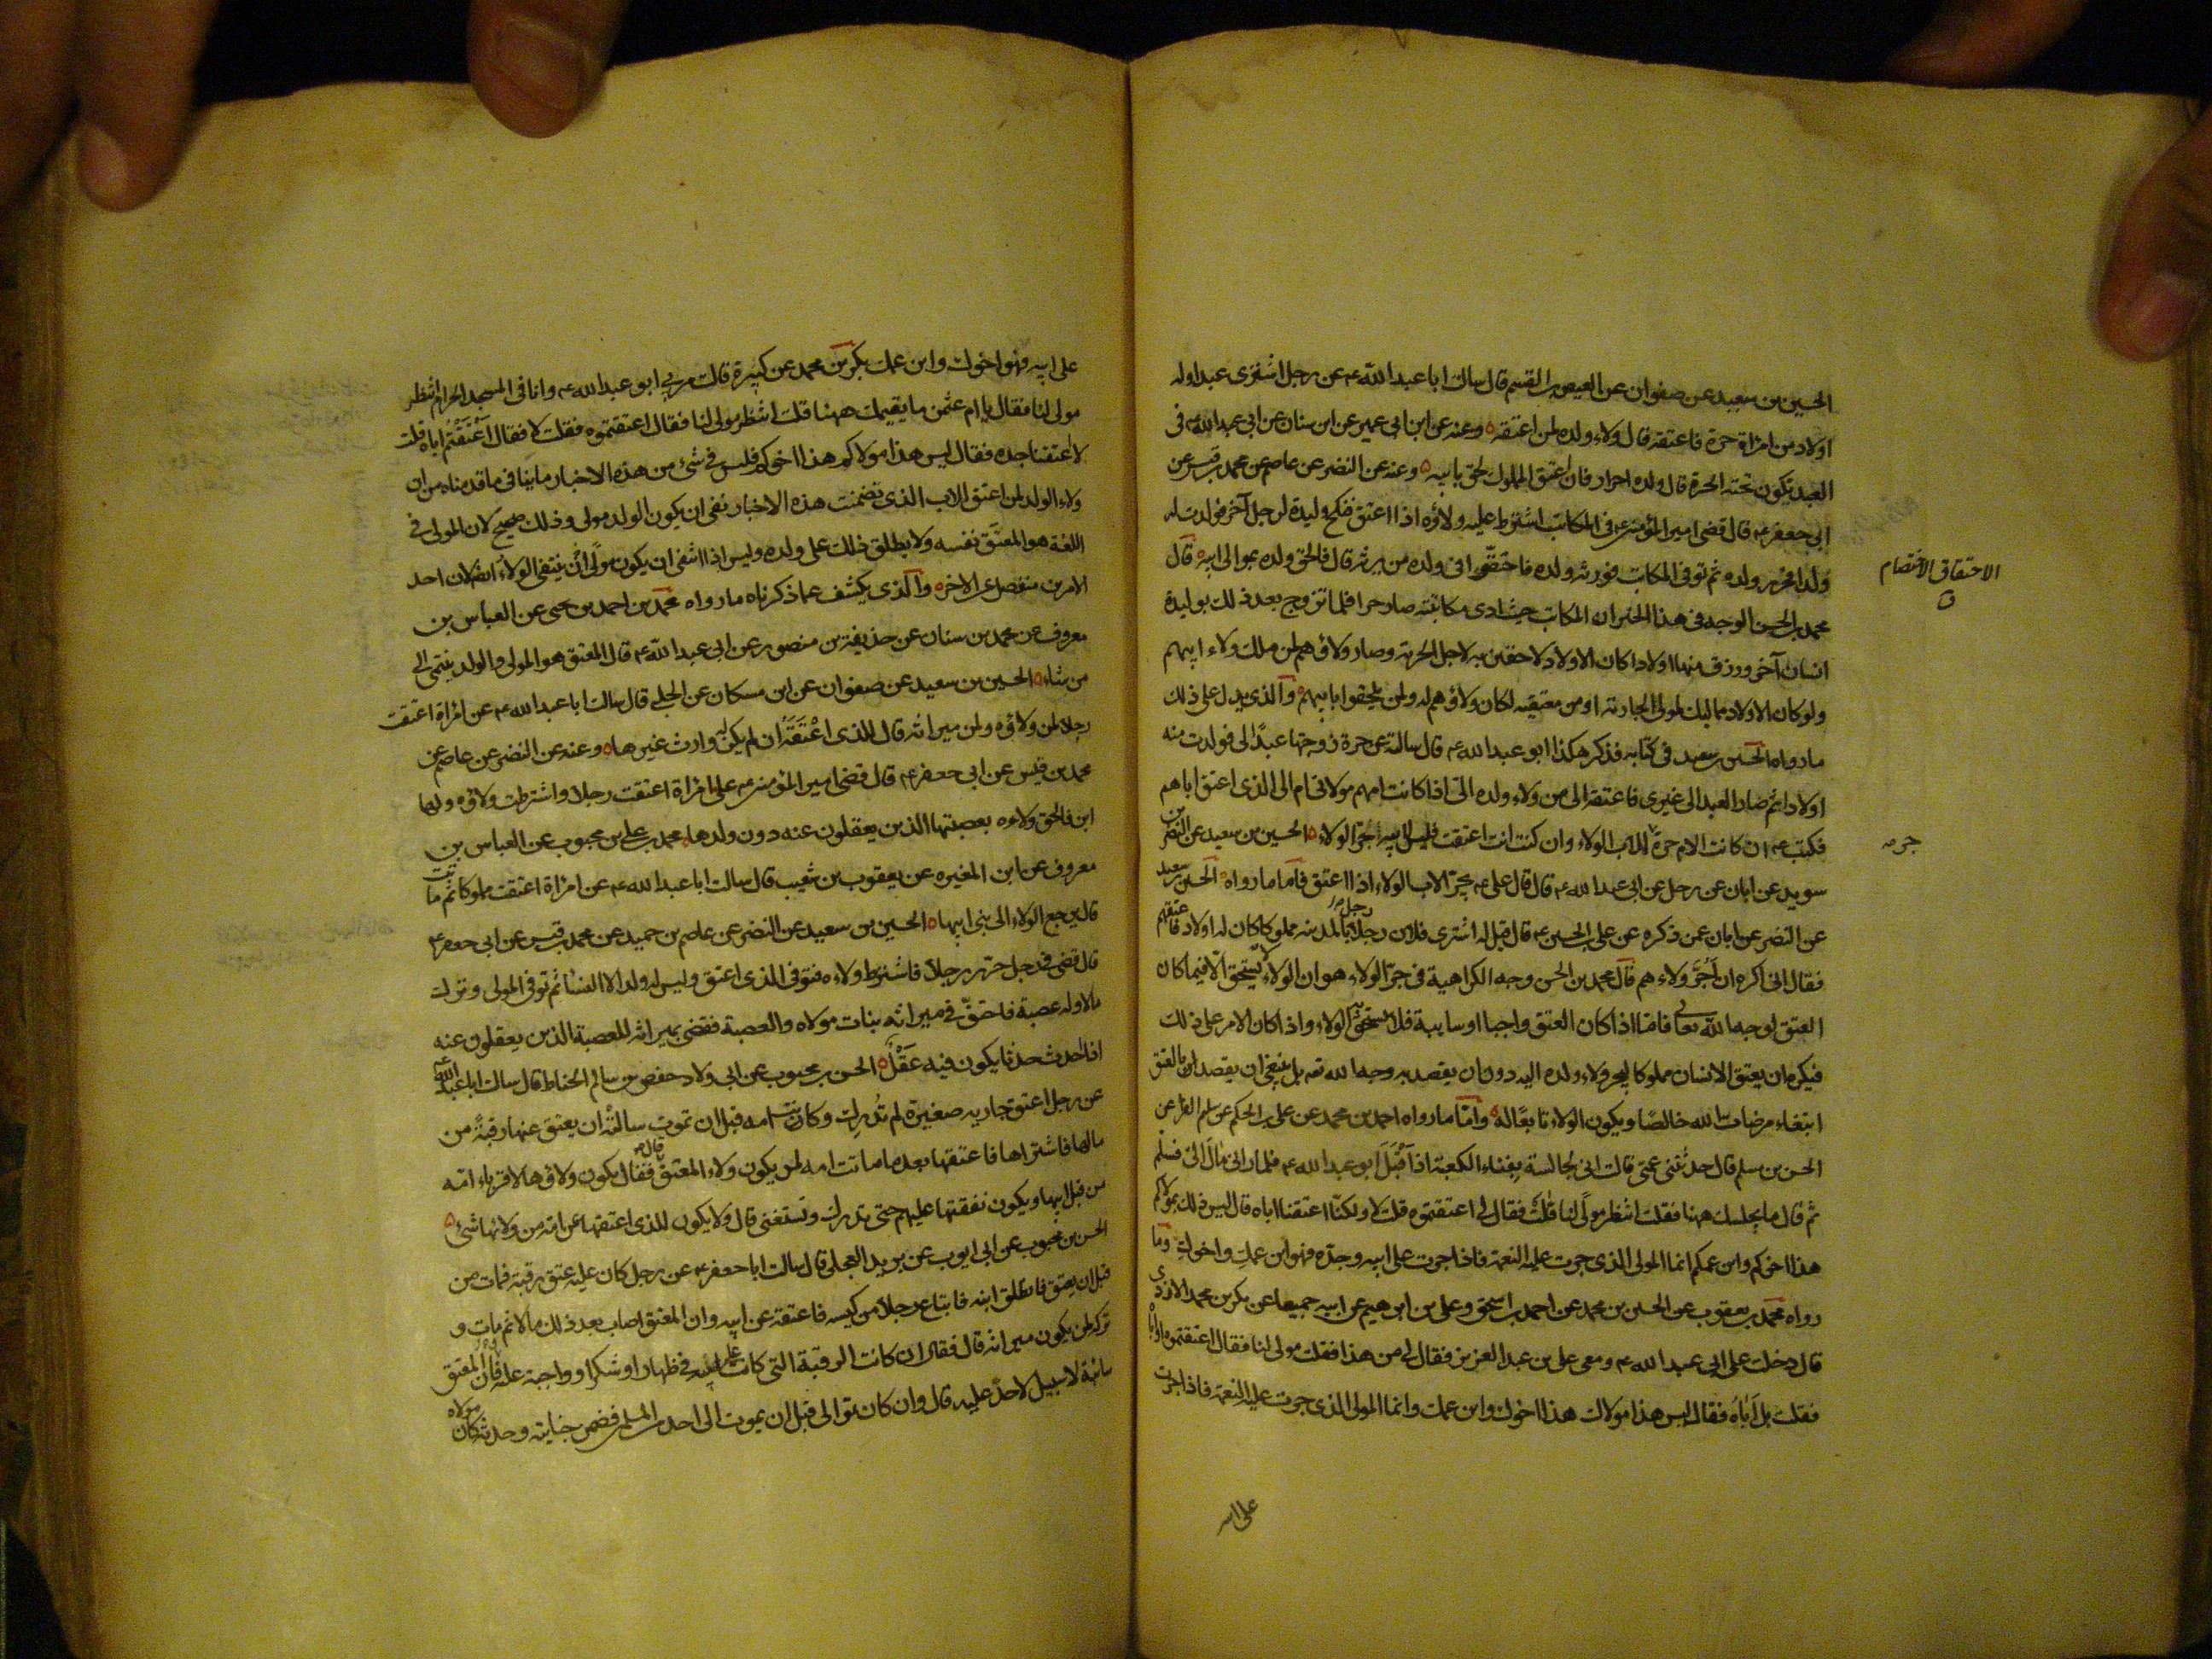 الحسين بن سعيد عن صفوان عن العيص بن القسم قال سالت ابا عبد الله ع عن رجل اشترى عبدا وله
اولاد من امراة حرة فاعتقه قال ولاء ولده لمن اعتقه وعنه عن ابن ابي عمير عن ابن سنان عن ابي عبد الله ع في
العبد تكون تحته الحرة قال ولده احرار فان اعتق المملوك لحق بابيه وعنه عن النضر عن عاصم عن محمد بن قيس عن
ابي جعفر ع قال قضى امير المؤمنين ع في المكاتب اشترط عليه ولاؤه اذا اعتق فنكح وليدة لرجل آخر فولدت له
ولدا فحرر ولده ثم توفي المكاتب فورثه ولده فاختلفوا في ولده من يرثه قال فالحق ولده بموالي ابيه قال
محمد بن الحسن الوجه في هذا الخبر ان المكاتب حيث ادى مكاتبته صار حرا فلما تزوج بعد ذلك بوليدة
انسان آخر ورزق منها اولادا كان الاولاد لاحقين به لاجل الحرية وصار ولاؤهم لمن ملك ولاء ابيهم
ولو كان الاولاد مماليك لمولى الجارية او من معتقيه لكان ولاؤهم له ولم يلحقوا بابيهم والذي يدل على ذلك
ما رواه الحسين بن سعيد في كتابه فذكر هكذا ابو عبد الله ع قال سالته عن حرة زوجتها عبدا لي فولدت منه
اولادا ثم صار العبد الى غيري فاعتقه الى من ولاء ولده الي اذا كانت امهم مولاتي ام الى الذي اعتق اباهم
فكتب ع ان كانت الام حرة جر الاب الولاء وان كنت انت اعتقت فليس لابيه جر الولاء الحسين بن سعيد عن النضر بن
سويد عن ابان عن رجل عن ابي عبد الله ع قال قال علي ع يجر الاب الولاء اذا اعتق فاما ما رواه الحسين بن سعيد
عن النضر عن ابان عمن ذكره عن علي بن الحسين ع قال قيل له اشترى فلان رجل بالمدينة مملوكا كان له اولاد فاعتقهم
فقال اني اكره ان اجر ولاءهم قال محمد بن الحسن وجه الكراهية في جر الولاء هو ان الولاء لا يستحق الا فيما كان
العتق لوجه الله تعالى فاما اذا كان العتق واجبا او سايبة فلا يستحق به الولاء واذا كان الامر على ذلك
فيكره ان يعتق الانسان مملوكا ليجر ولاء ولده اليه دون ان يقصد به وجه الله تع بل ينبغي ان يقصد بالعتق
ابتغاء مرضات الله خالصا ويكون الولاء تابعا له واما ما رواه احمد بن محمد عن علي بن الحكم عن سلم الفراء عن
الحسن بن سلم قال حدثتني عمتي قالت اني لجالسة بفناء الكعبة اذ اقبل ابو عبد الله ع فلما راني مال الي فسلم
ثم قال ما يجلسك ههنا فقلت انتظر مولى لنا قلت فقال لي اعتقتموه قلت لا ولكنا اعتقنا اباه قال ليس ذلك بمولاكم
هذا اخوكم وابن عمكم انما المولى الذي جرت عليه النعمة فاذا جرت على ابيه وجده فهو ابن عمك واخوك وما
رواه محمد بن يعقوب عن الحسين بن محمد عن احمد بن اسحق وعلي بن ابراهيم عن ابيه جميعا عن بكر بن محمد الازدي
قال دخلت على ابي عبد الله ع ومعي علي بن عبد العزيز فقال لي من هذا فقلت مولى لنا فقال اعتقتموه او اباه
فقلت بل اباه فقال ليس هذا مولاك هذا اخوك وابن عمك وانما المولى الذي جرت عليه النعمة فاذا جرت
على ابيه
الاحتقاق الاختصام
ن
جر ص
على ابيه فهو اخوك وابن عمك بكر بن محمد عن كبيرة قالت مر بي ابو عبد الله ع وانا في المسجد الحرام انتظر
مولى لنا فقال يا ام عثمن ما يقيمك ههنا قلت انتظر مولى لنا فقال اعتقتموه فقلت لا فقال اعتقتم اباه قلت
لا اعتقنا جده فقال ليس هذا مولاكم هذا اخوكم فليس في شئ من هذه الاخبار ما ينافي ما قدمناه من ان
ولاء الولد لمن اعتق الاب الذي تضمنت هذه الاخبار نفي ان يكون الولد مولى وذلك صحيح لان المولى في
اللغة هو المعتق نفسه ولا يطلق ذلك على ولده وليس اذا انتفى ان يكون مولى ان ينتفي الولاء ايضا لان احد
الامرين منفصل عن الاخر والذي يكشف عما ذكرناه ما رواه محمد بن احمد بن يحيى عن العباس بن
معروف عن محمد بن سنان عن حذيفة بن منصور عن ابي عبد الله ع قال المعتق هو المولى والولد ينتمي الى
من شاء الحسين بن سعيد عن صفوان عن ابن مسكان عن الحلبي قال سالت ابا عبد الله ع عن امراة اعتقت
رجلا لمن ولاؤه ولمن ميراثه قال للذي اعتقه ان لم يكن له وارث غيرها وعنه عن النضر عن عاصم عن
محمد بن قيس عن ابي جعفر ع قال قضى امير المؤمنين ع على امراة اعتقت رجلا واشترطت ولاؤه ولها
ابن فالحق ولاءه بعصبتها الذين يعقلون عنه دون ولدها محمد بن علي بن محبوب عن العباس بن
معروف عن ابن المغيره عن يعقوب بن شعيب قال سالت ابا عبد الله ع عن امراة اعتقت مملوكا ثم ماتت
قال يرجع الولاء الى بني ابيها الحسين بن سعيد عن النضر عن عاصم بن حميد عن محمد بن قيس عن ابي جعفر ع
قال قضى في رجل حرر رجلا فاشترط ولاءه فتوفي الذي اعتق وليس له ولد الا النساء ثم توفي المولى وترك
مالا وله عصبة فاحتق في ميراثه بنات مولاه والعصبة فقضى بميراثه للعصبة الذين يعقلون عنه
اذا احدث حدثا يكون فيه عقل الحسن بن محبوب عن ابي ولاد حفص بن سالم الحناط قال سالت ابا عبد الله ع
عن رجل اعتق جاريه صغيرة لم تدرك وكانت امه قبل ان تموت سالته ان يعتق عنها رقبة من
مالها فاشتراها فاعتقها بعد ما ماتت امه لمن يكون ولاء المعتق قال فقال يكون ولاؤها لاقرباء امه
من قبل ابيها ويكون نفقتها عليهم حتى تدرك وتستغني قال ولا يكون للذي اعتقها عن امه من ولائها شئ
الحسن بن محبوب عن ابي ايوب عن بريد العجلي قال سالت ابا جعفر ع عن رجل كان عليه عتق رقبة فمات من
قبل ان يعتق فانطلق ابنه فابتاع رجلا من كيسه فاعتقه عن ابيه وان المعتق اصاب بعد ذلك مالا ثم مات و
تركه لمن يكون ميراثه قال فقال ان كانت الرقبة التي كانت على ابيه في ظهار او شكر او واجبة عليه فان المعتق
سائبة لا سبيل لاحد عليه قال وان كان توالى قبل ان يموت الى احد من المسلمين فضمن جنايته وحدثه كان مولاه